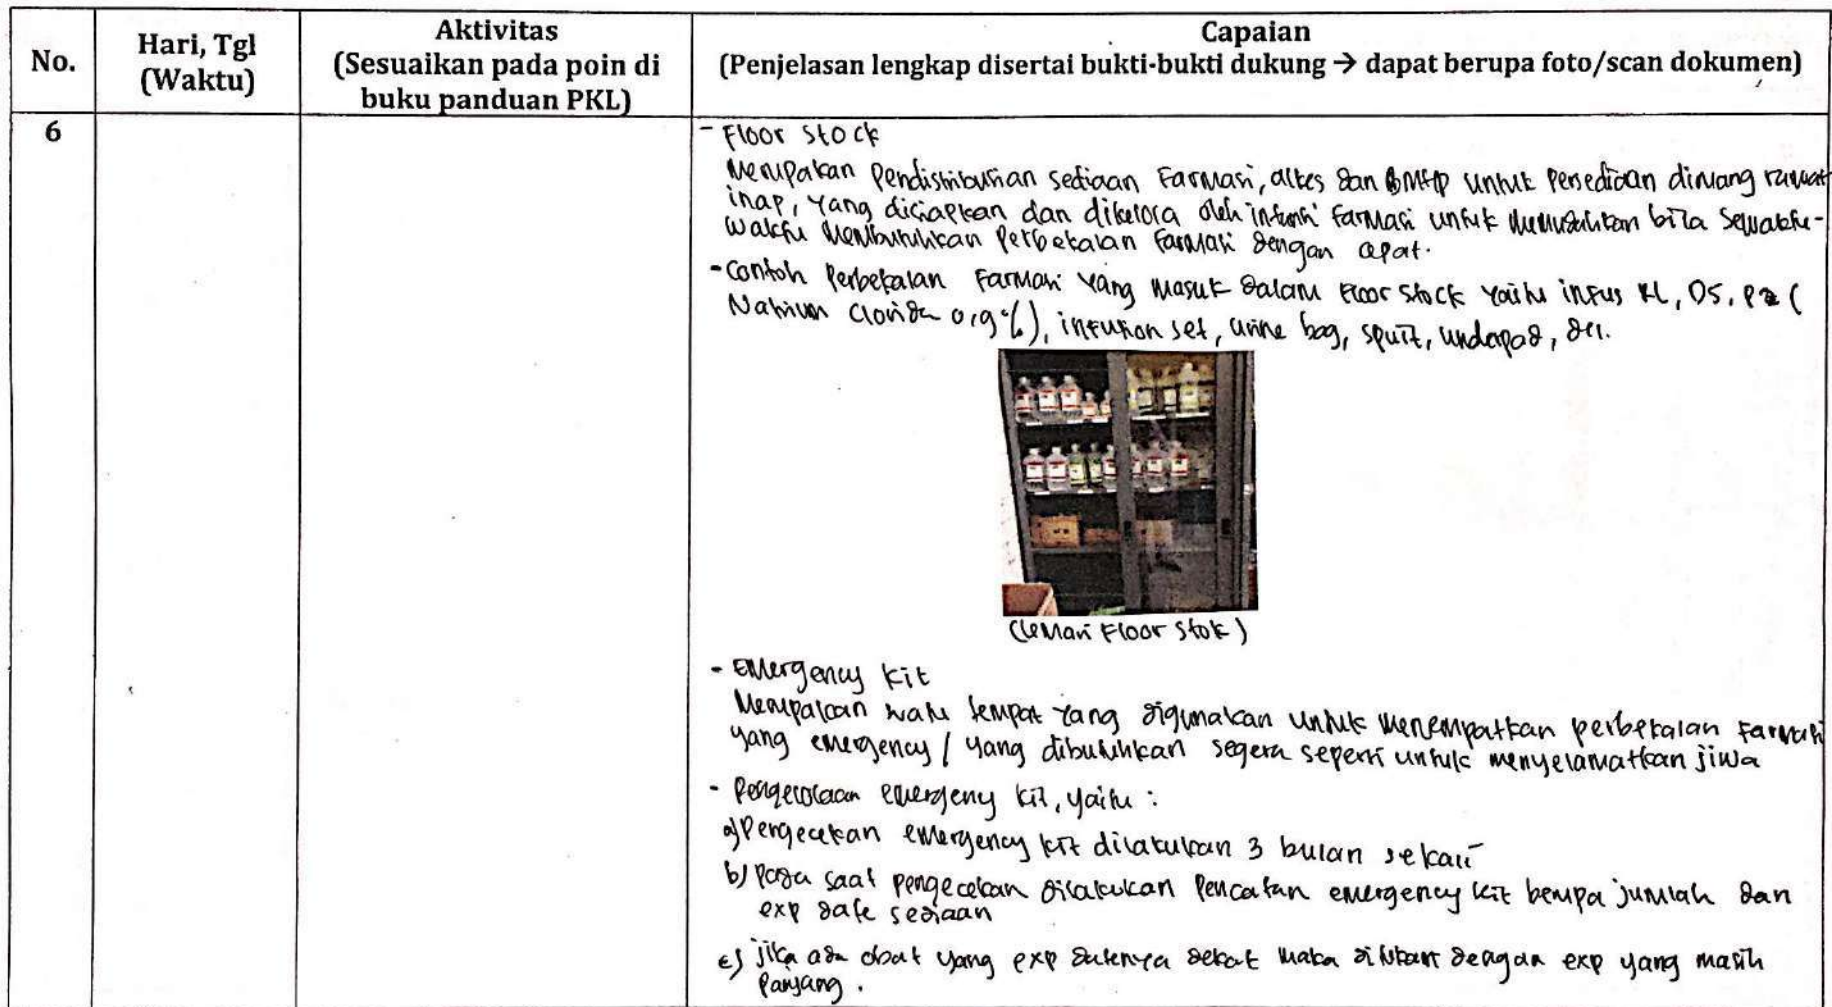 No.
Hari, Tgl
(Waktu)
Aktivitas
(Sesuaikan pada poin di
buku panduan PKL)
Capaian
(Penjelasan lengkap disertai bukti-bukti dukung → dapat berupa foto/scan dokumen)
6
- Floor stock
Merupakan Pendistribusian sediaan Farmasi, alkes dan BMHP untuk Persediaan diruang rawat
inap, yang disiapkan dan dikelola oleh instansi farmasi untuk memudahkan bila sewaktu-
waktu membutuhkan Perbekalan farmasi dengan cepat.
- Contoh Perbekalan Farmasi yang masuk dalam Floor Stock yaitu infus RL, D5, PZ (
Natrium Clorida 0,9%), infusion set, urine bag, spuit, underpad, dll.
(lemari Floor Stok)
- Emergency kit
Merupakan suatu tempat yang digunakan untuk menempatkan perbekalan Farmasi
yang emergency / yang dibutuhkan segera seperti untuk menyelamatkan jiwa
- Pengelolaan emergeny kit, yaitu :
a) Pengecekan emergency kit dilakukan 3 bulan sekali
b) Pada saat pengecekan dilakukan Pencatan emergency kit berupa jumlah dan
exp date sediaan
c) jika ada obat yang exp datenya dekat maka ditukar dengan exp yang masih
Panjang.